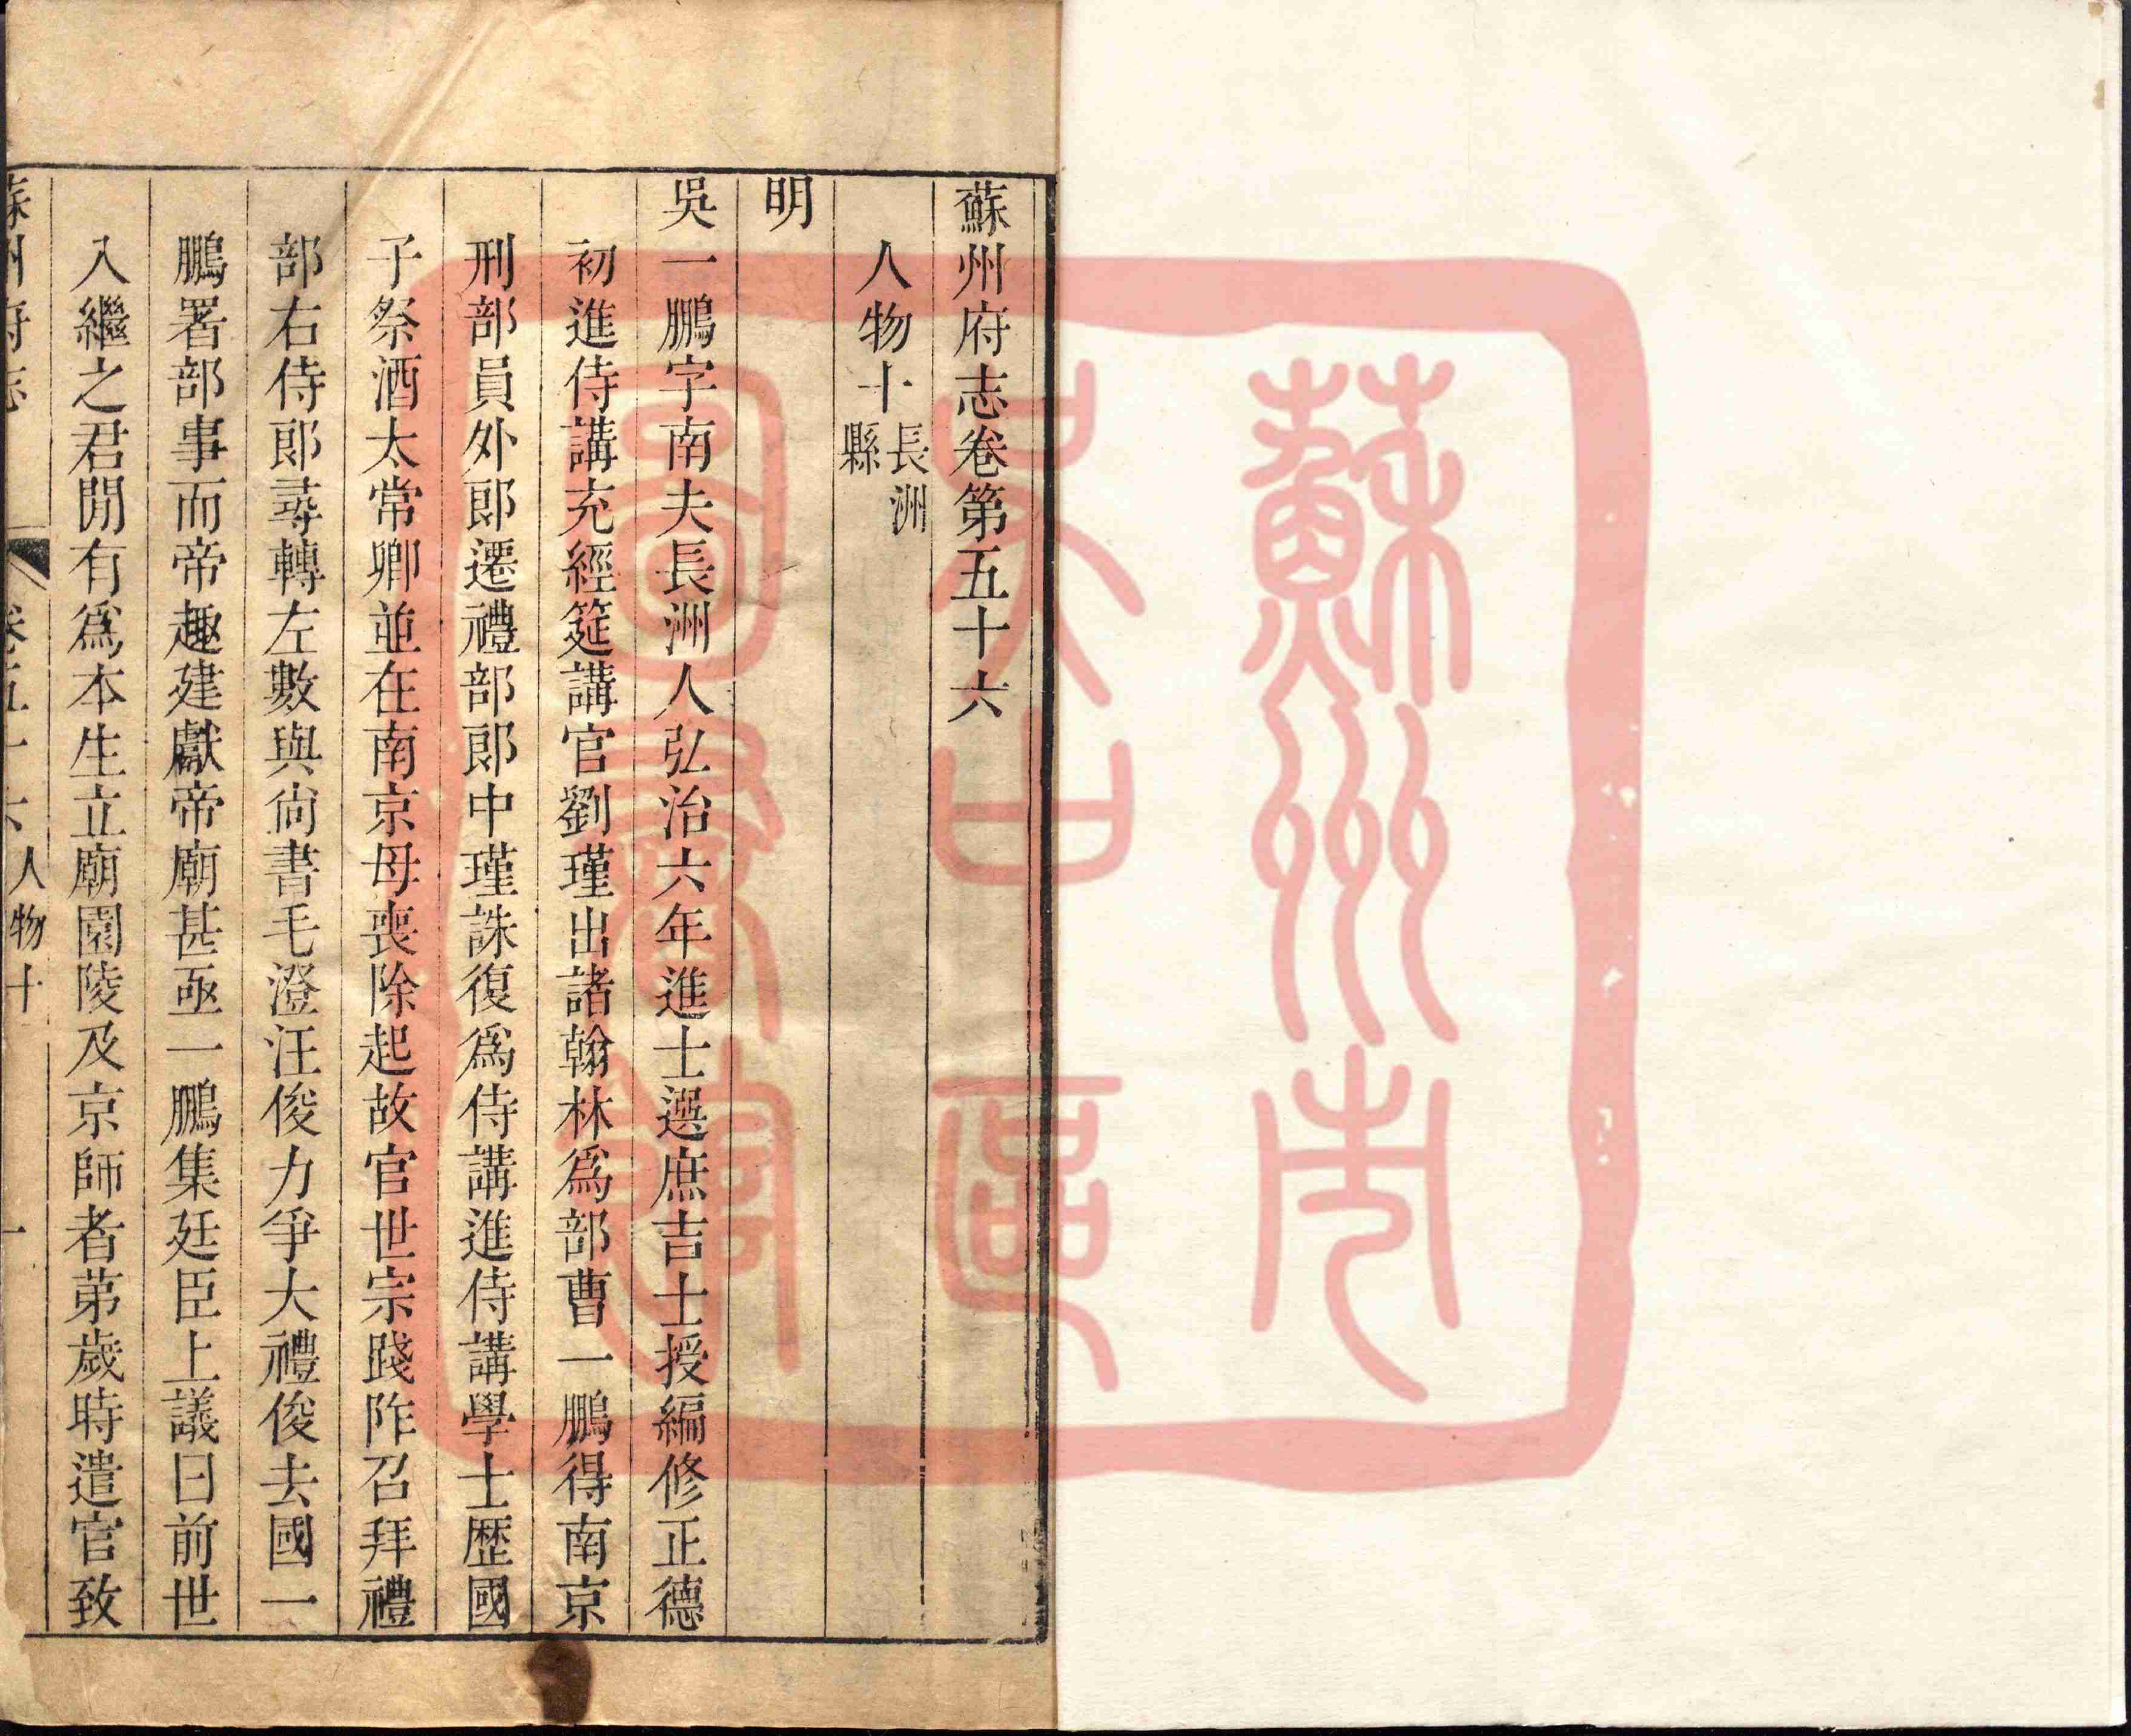 蘇州府志卷第五十六
人物十長洲縣
明
吳一鵬字南夫長洲人弘治六年進士選庶吉士授編修正德
初進侍講充經筵講官劉瑾出諸翰林為部曹一鵬得南京
刑部員外郎遷禮部郎中瑾誅復為侍講進侍講學士歴國
子祭酒太常卿並在南京母喪除起故官世宗踐阼召拜禮
部右侍郎尋轉左數與尚書毛澄汪俊力爭大禮俊去國一
鵬署部事而帝趣建獻帝廟甚亟一鵬集廷臣上議曰前世
入繼之君閒有為本生立廟園陵及京師者第歲時遣官致
蘇州府志 卷五十六 人物十 一
蘇州市
吳中區
圖書館